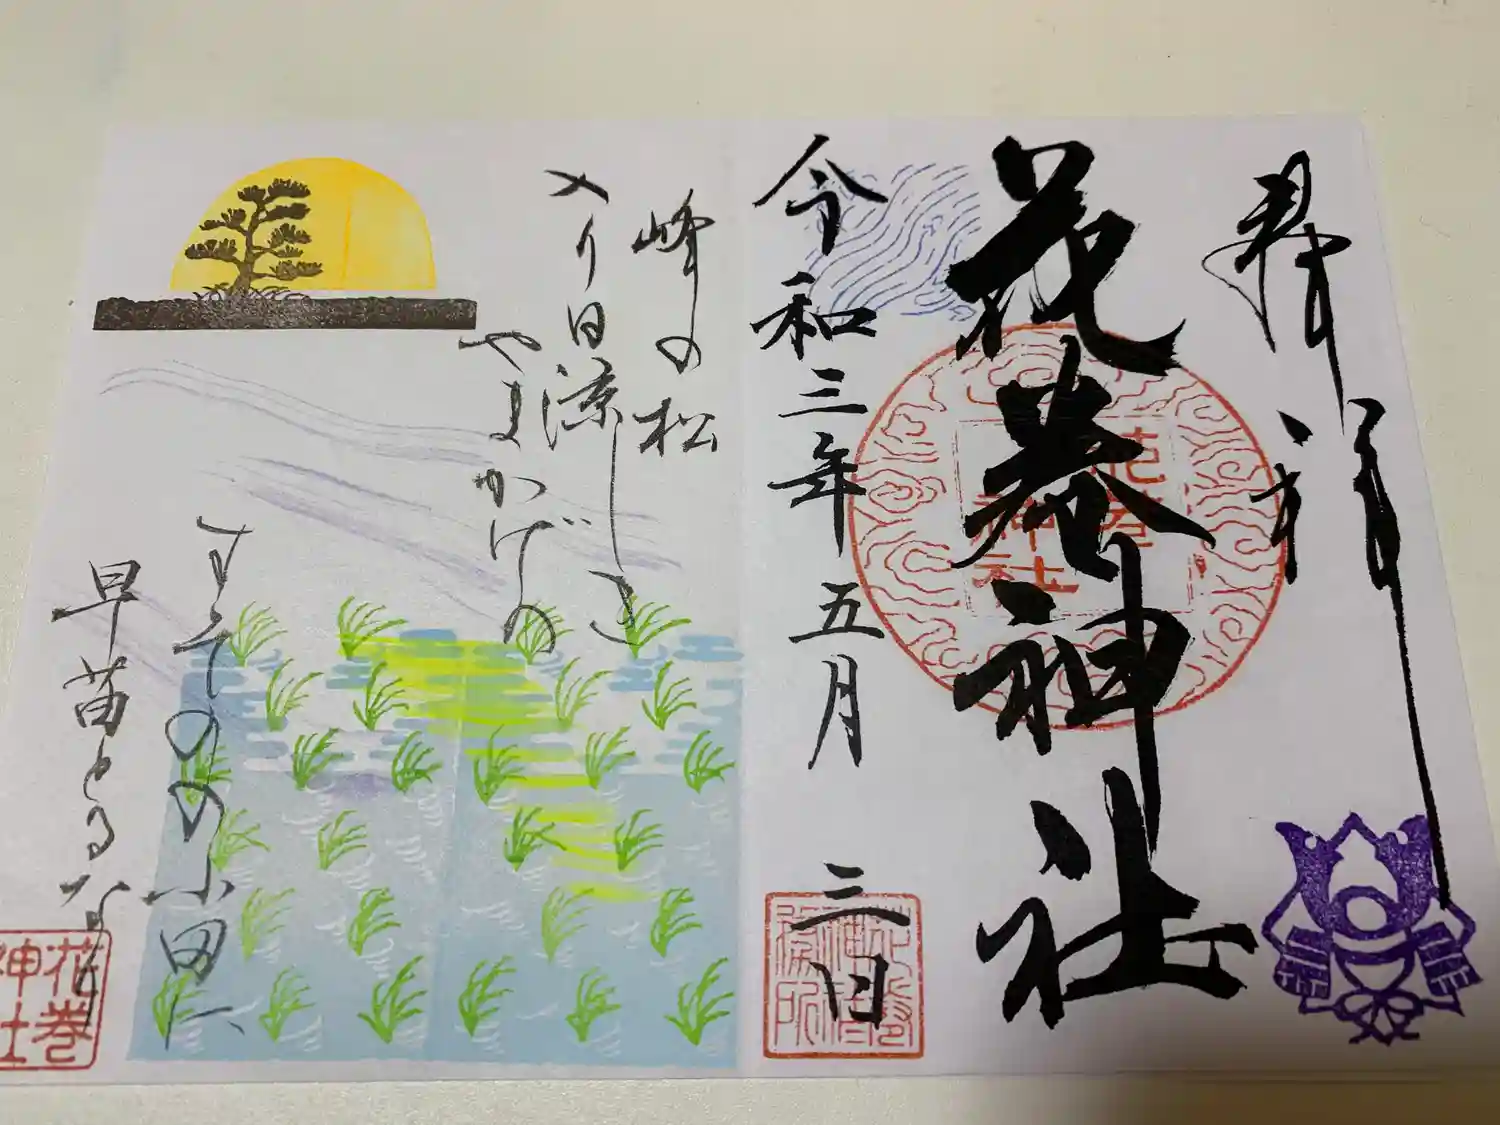 花巻神社
花巻神社
令和三年五月三日
峰の松
入り日涼しき
やまかげの
すそのの小田に
早苗とるなり
花巻神社